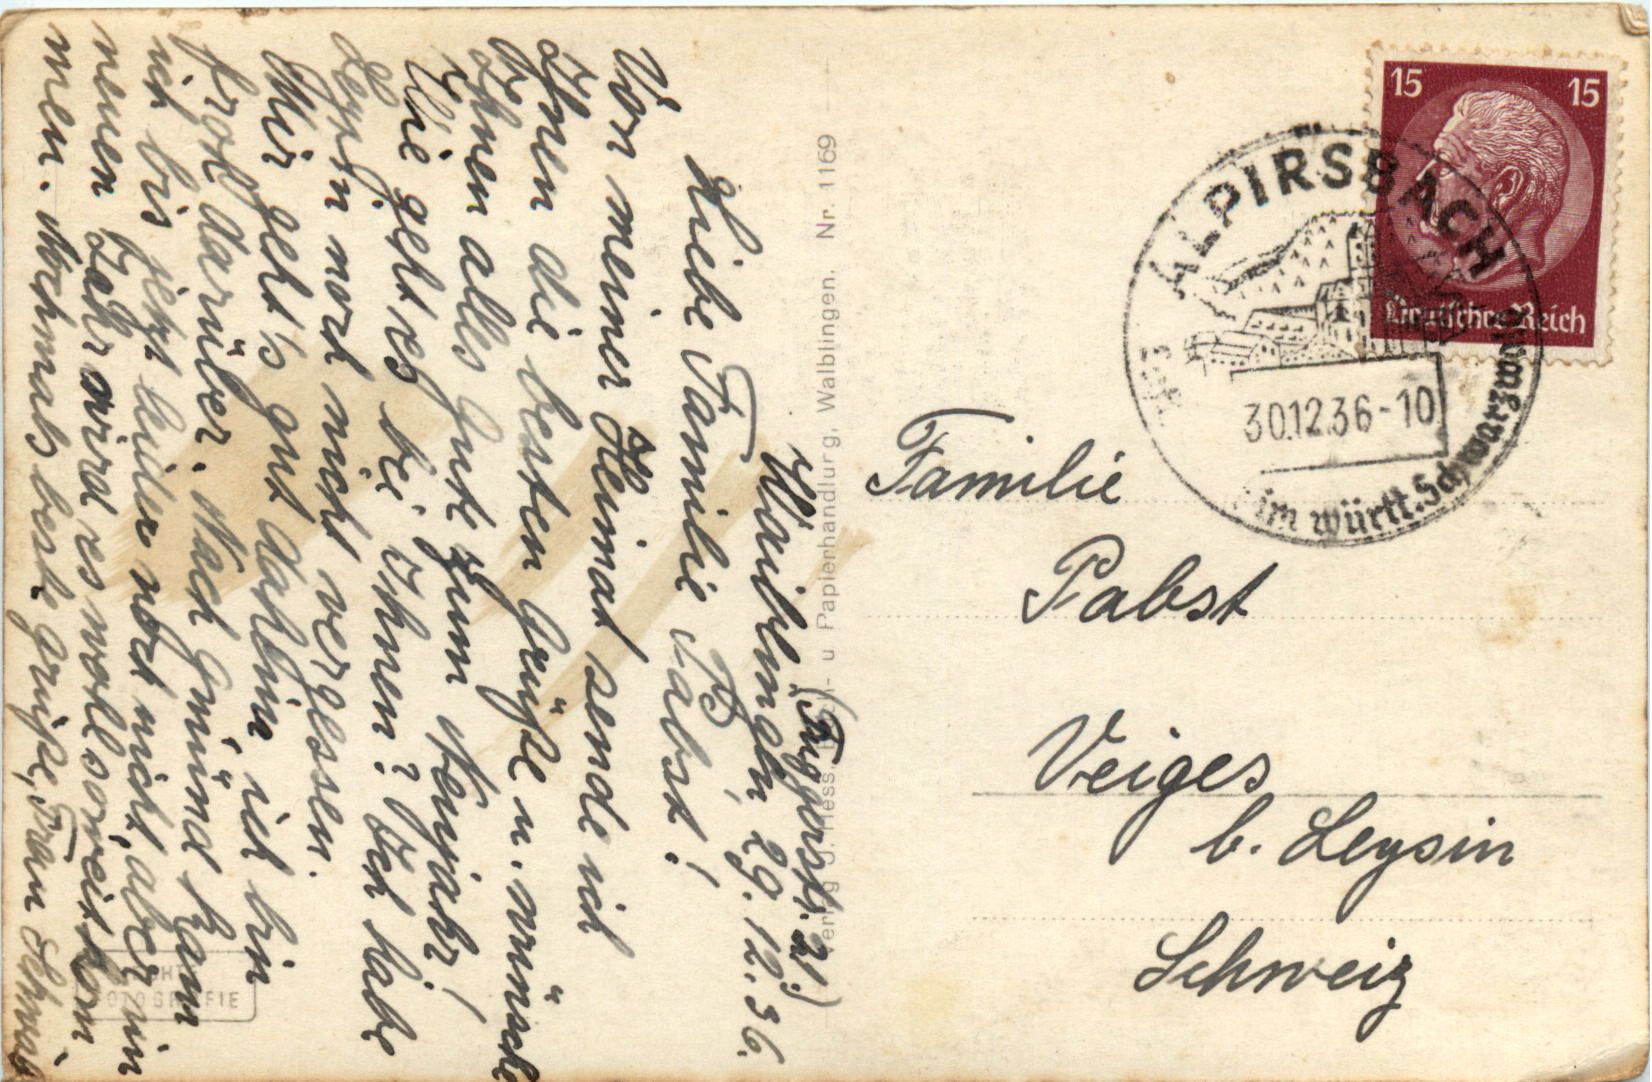 (Fuggerstr. 21.)
Waiblingen 29.12.36.
Liebe Familie Pabst!
Vor meiner Heimat sende ich
Ihnen die besten Grüße u. wünsche
Ihnen alles Gute zum Neujahr!
Wie geht es bei Ihnen? Ich habe
Leysin noch nicht vergessen.
Mir geht's gut daheim, ich bin
froh darüber. Nach Gmünd kam
ich bis jetzt leider noch nicht, aber im
neuen Jahr wird es wohl soweit kom
men. Nochmals beste Grüße, Fran
Verlag J. Hess, Buch- u Papierhandlung, Waiblingen. Nr. 1169
ECHTE
FOTOGRAFIE
15 15
Deutsches Reich
ALPIRSBACH
30.12.36-10
im württ. Schwarzwald
Familie
Pabst
Veiges
b. Leysin
Schweiz